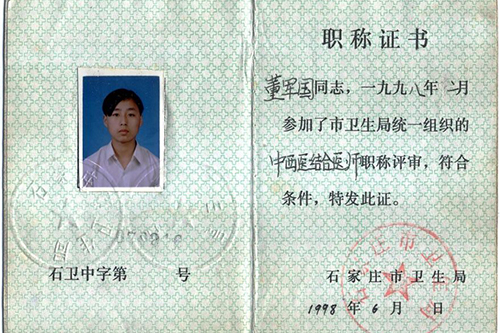 石卫中字第 号
职称证书
董军国同志，一九九八年二月
参加了市卫生局统一组织的
中西医结合医师职称评审，符合
条件，特发此证。
石家庄市卫生局
1998年6月 日
石家庄市卫生局